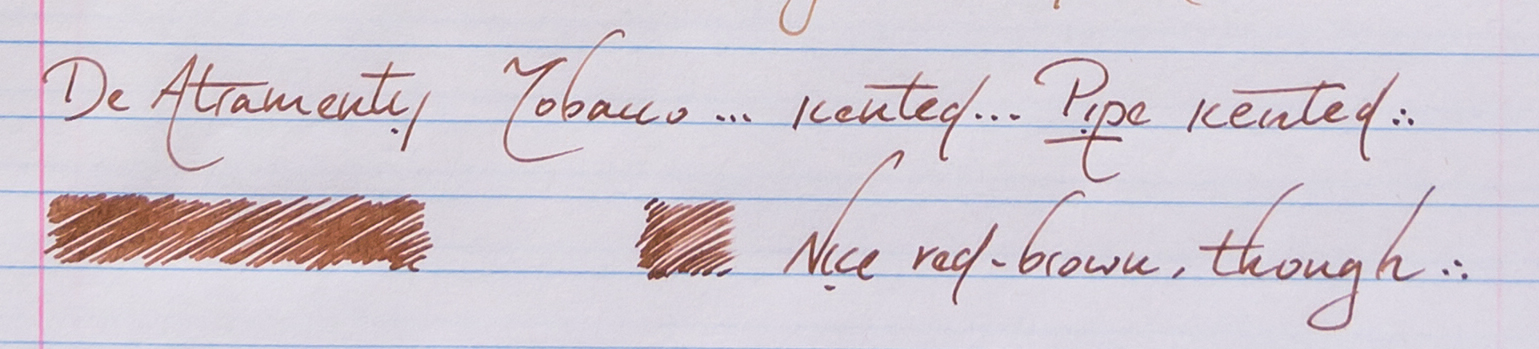 De Atramentis Tobacco... scented... Pipe scented∴
Nice red-brown, though∴